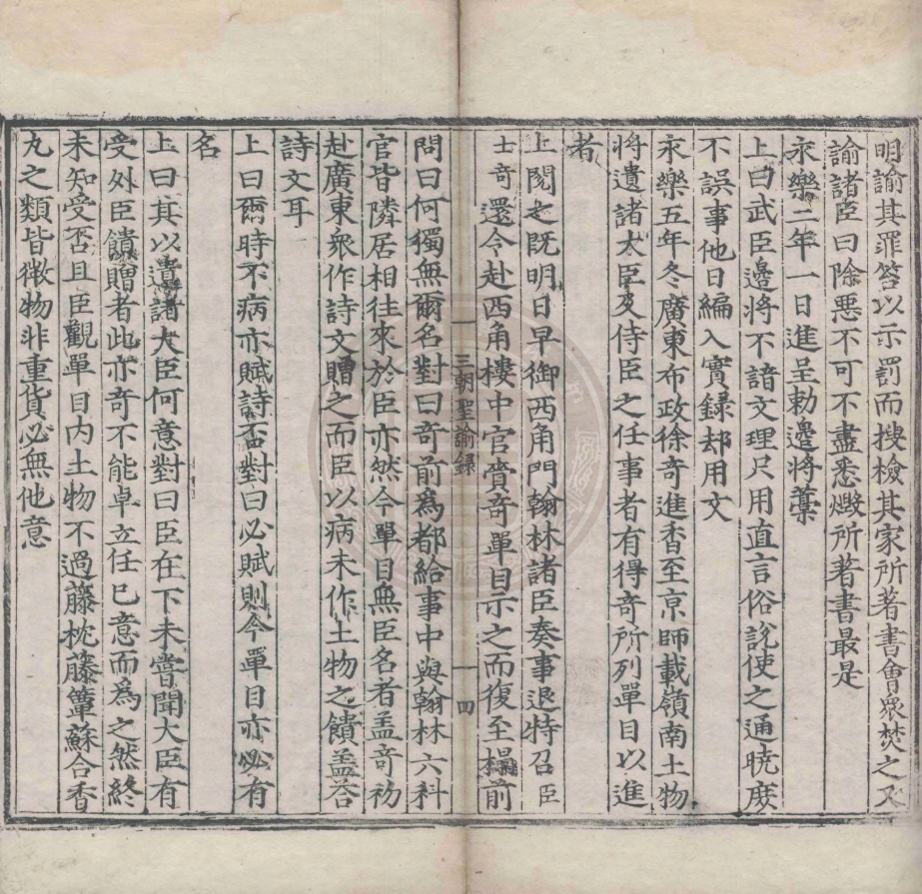 明諭其罪笞以示罰而搜檢其家所著書會衆焚之又
諭諸臣曰除惡不可不盡悉燬所著書最是
永樂二年一日進呈勑邊將藳
上曰武臣邊將不諳文理只用直言俗說使之通曉庻
不誤事他日編入實録却用文
永樂五年冬廣東布政徐奇進香至京師載嶺南土物
將遺諸大臣及侍臣之任事者有得奇所列單目以進
者
上閱之既明日早御西角門翰林諸臣奏事退特召臣
士奇還令赴西角樓中官賫奇單目示之而復至榻前
三朝聖諭録
四
問曰何獨無爾名對曰奇前爲都給事中與翰林六科
官皆隣居相往來於臣亦然今單目無臣名者盖奇初
赴廣東衆作詩文贈之而臣以病未作土物之饋盖荅
詩文耳
上曰爾時不病亦賦詩否對曰必賦則今單目亦必有
名
上曰其以遺諸大臣何意對曰臣在下未嘗聞大臣有
受外臣饋贈者此亦奇不能卓立任已意而爲之然終
未知受否且臣觀單目内土物不過藤枕藤簟蘇合香
丸之類皆微物非重貨必無他意